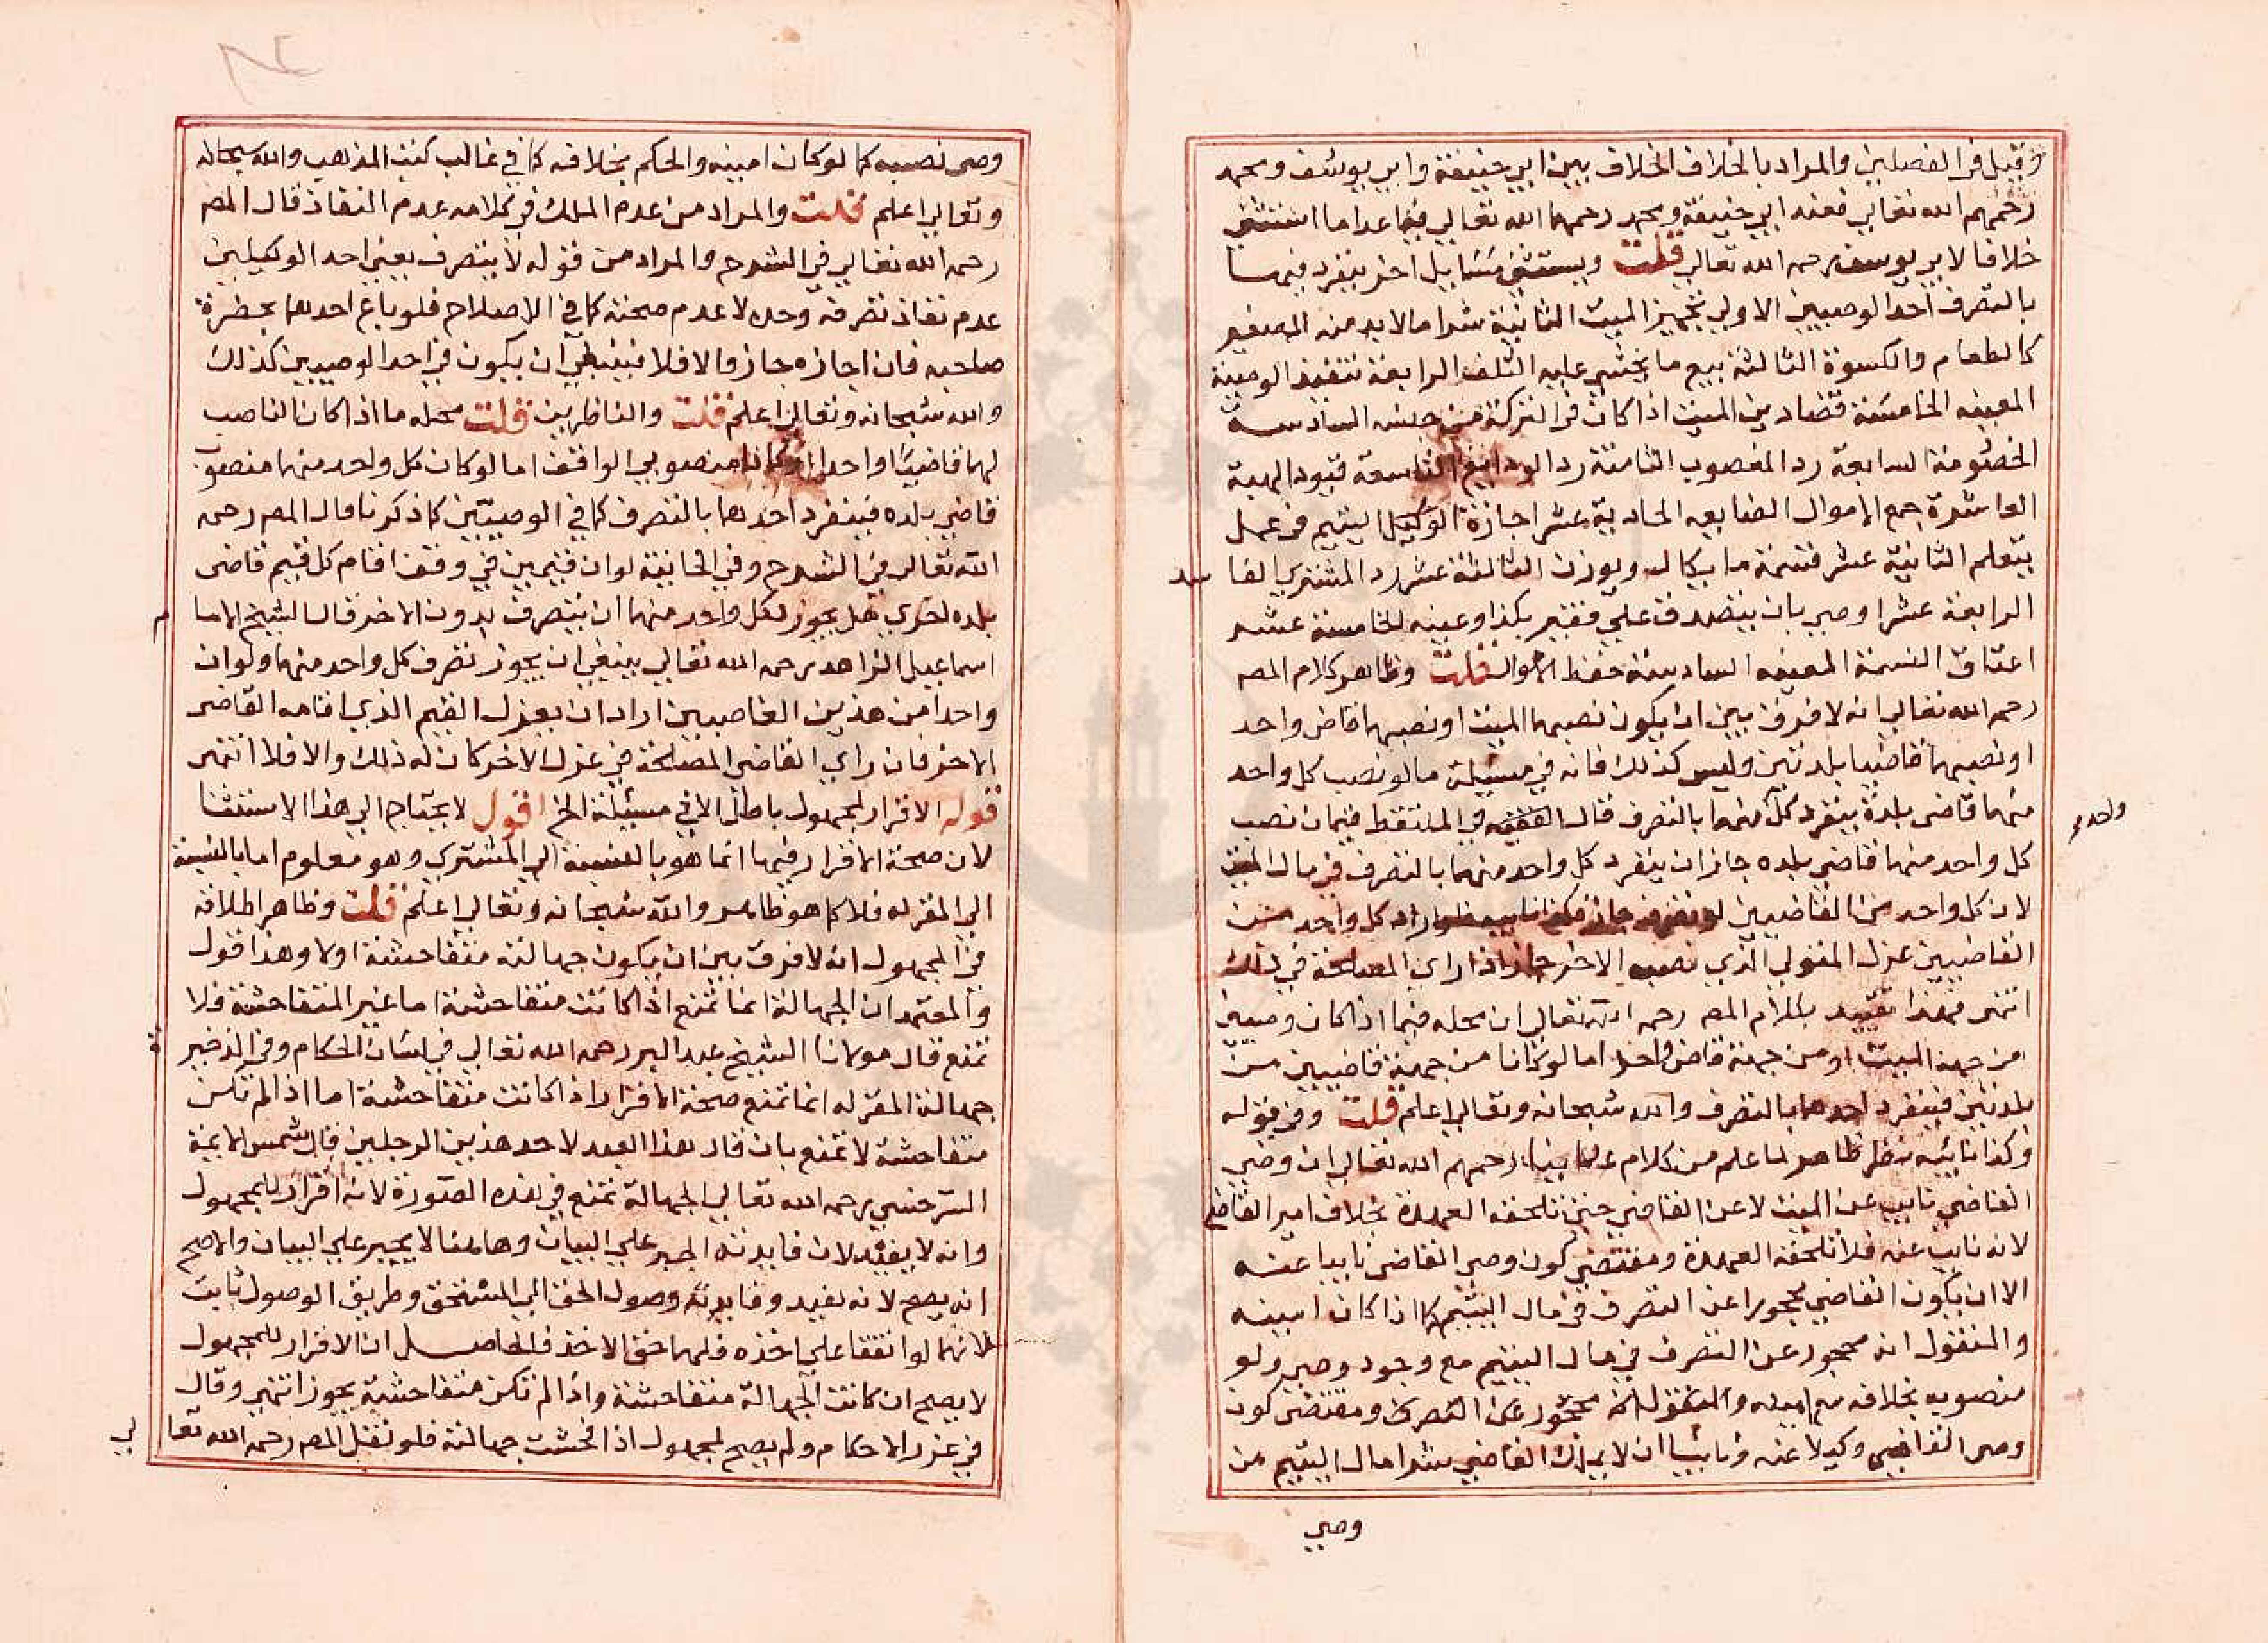 وقيل في الفصلين والمراد بالخلاف الخلاف بين ابي حنيفة وابي يوسف ومحمد
رحمهم الله تعالى فعند ابي حنيفة ومحمد رحمهما الله تعالى فيما عدا ما استثني
خلافا لابي يوسف رحمه الله تعالى قلت ويستثني مسايل اخر ينفرد فيها
بالتصرف احد الوصيين الاولى تجهيز الميت الثانية شرا ما لا بد منه للصغير
كالطعام والكسوة الثالثة بيع ما يخشى عليه التلف الرابعة تنفيذ الوصية
المعينه الخامسة قضا دين الميت اذا كان في التركة من جنسه السادسة
الخصومة السابعة رد المغصوب الثامنة رد الودايع التاسعة قبول الهبة
العاشرة جمع الاموال الضايعه الحادية عشر اجازة اليتيم في عمل
يتعلم الثانية عشر قسمة ما يكال ويوزن الثالثة عشر رد المشتري الفا
سد
الرابعة عشر اوصى بان يتصدق على فقير بكذا وعينه الخامسة عشر
اعتاق النسمة المعينه السادسة حفظ الاموال قلت وظاهر كلام المص
رحمه الله تعالى انه لا فرق بين ان يكون نصبهما الميت او نصبهما قاض واحد
او نصبهما قاضيا بلدتين وليس كذلك فانه في مسيلة ما لو نصب كل واحد
منهما قاضي بلدة ينفرد كل منهما بالتصرف قال الفقيه في الملتقط فيمان نصب
واحد
كل واحد منهما قاضي بلده جاز ان ينفرد كل واحد منهما بالتصرف في مال الميت
لان كل واحد من القاضيين لو تصرف جاز فكذا نايبه فلو اراد كل واحد من
القاضيين عزل المتولي الذي نصبه الاخر جاز اذا راي المصلحة في ذلك
انتهى فهذا تقييد بكلام المص رحمه الله تعالى ان محله فيما اذا كان وصيين
من جهة الميت او من جهة قاض واحد اما لو كانا من جهة قاضيين من
بلدتين فينفرد احدهما بالتصرف والله سبحانه وتعالى اعلم قلت وفي قوله
وكذا نائبه نظر ظاهر لما علم من كلام علماينا رحمهم الله تعالى ان وصي
القاضي نايب عن الميت لا عن القاضي حتى تلحقه العهدة بخلاف امين القاضي
لانه نايب عنه فلا تلحقه العهدة ومقتضى كون وصي القاضي نايبا عنه
الا ان يكون القاضي محجورا عن التصرف في مال اليتيم كما اذا كان امينه
والمنقول انه محجور عن التصرف في مال اليتيم مع وجود وصيه ولو
منصوبه بخلافه مع امينه والمنقول انه محجور عن التصرف ومقتضى كون
وصي القاضي وكيلا عنه ونايبا ان لا يملك القاضي شرا مال اليتيم من
وصي
وصي نصبه كما لو كان امينه والحكم بخلافه كما في غالب كتب المذهب والله سبحانه
وتعالى اعلم قلت والمراد من عدم الملك في كلامه عدم النفاذ قال المص
رحمه الله تعالى في الشرح والمراد من قوله لا يتصرف يعني احد الوكيلين
عدم نفاذ تصرفه وحده لا عدم صحته كما في الاصلاح فلو باع احدهما بحضرة
صاحبه فان اجازه جاز والا فلا فينبغي ان يكون في احد الوصيين كذلك
والله سبحانه وتعالى اعلم قلت والناظرين قلت محله ما اذا كان الناصب
لهما قاضيا واحدا او كانا منصوبي الواقف اما لو كان كل واحد منهما منصوب
قاضي بلده فينفرد احدهما بالتصرف كما في الوصيين كما ذكرنا قال المص رحمه
الله تعالى في الشرح وفي الخانية لو ان قيمين في وقف اقام كل قيم قاضي
بلده اخرى هل يجوز لكل واحد منهما ان يتصرف بدون الاخر قال الشيخ الاما
م
اسماعيل الزاهد رحمه الله تعالى ينبغي ان يجوز تصرف كل واحد منهما ولو ان
واحدا من هذين القاضيين اراد ان يعزل القيم الذي اقامه القاضي
الاخر فان راي القاضي المصلحة في عزل الاخر كان له ذلك والا فلا انتهى
قوله الاقرار لمجهول باطل الا في مسئلة الخ اقول لا يحتاج الى هذا الاستثنا
لان صحة الاقرار فيها انما هو بالنسبة الى المشتري وهو معلوم اما بالنسبة
الى المقر له فلا كما هو ظاهر والله سبحانه وتعالى اعلم قلت وظاهر اطلاقه
في المجهول انه لا فرق بين ان يكون جهالته متفاحشة اولا وهذا قول
والمعتمد ان الجهالة انما تمنع اذا كانت متفاحشة اما غير المتفاحشة فلا
تمنع قال مولانا الشيخ عبد البر رحمه الله تعالى في لسان الحكام وفي الذخير
ة
جهالة المقر له انما تمنع صحة الاقرار اذا كانت متفاحشة اما اذا لم تكن
متفاحشة لا تمنع بان قال هذا العبد لاحد هذين الرجلين قال شمس الايمة
السرخسي رحمه الله تعالى الجهالة تمنع في هذه الصورة لانه اقرار للمجهول
وانه لا يفيد لان فايدته الجبر على البيان وهاهنا لا يجبر على البيان والاصح
انه يصح لانه يفيد وفايدته وصول الحق الى المستحق وطريق الوصول ثابت
لانهما لو اتفقا على اخذه فلهما حق الاخذ فالحاصل ان الاقرار للمجهول
لا يصح ان كانت الجهالة متفاحشة واذا لم تكن متفاحشة يجوز انتهى وقال
في غرر الاحكام ولم يصح لمجهول اذا فحشت جهالته فلو نقل المص رحمه الله تعا
لى